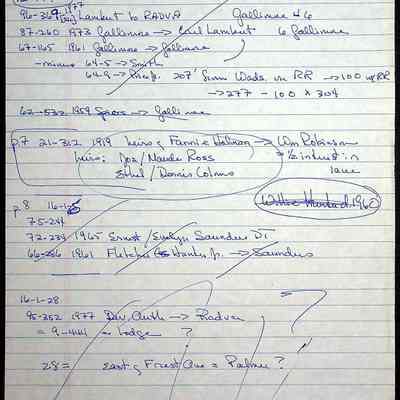 96-369 1977 Lambert to RADVA Gallimore #6
87-260 1973 Gallimore → Carl Lambert 6 Gallimore
67-165 1961 Gallimore → Gallimore
- minus 64-5 → Smith
64-9 → 207' from Wade on RR → 100 w/RR
→ 277 - 100 x 304
62-532 1959 Spiers → Gallimore
p.7 21-312 1919 heirs of Fannie → Wm Robinson
heirs: Joe/Maude Ross ½ interest in
Ethel/Dennis lane
1960
p.8 16-1-25
75-241
72-234 1965 Ernest/Evelyn Saunders DT
66-286 1961 Fletcher Jr. → Saunders
16-1-28
95-352 1977 Dev. Auth → Radva
= 9-444 → Lodge ?
28 = east of Frest Ave = Palmer ?